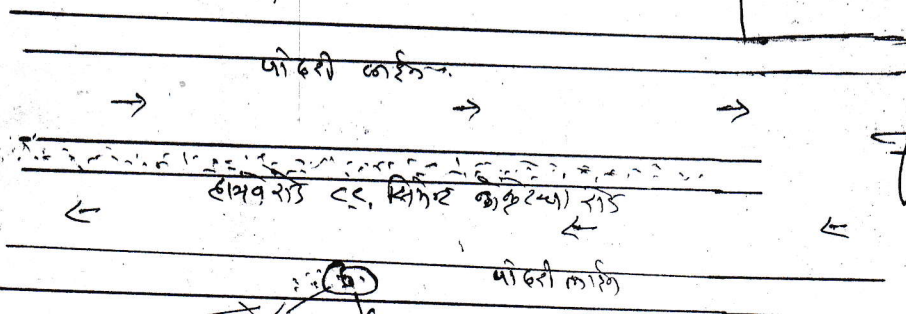 पांढरी लाईन
हायवे रोड ८८, सिमेन्ट काँक्रेटचा रोड
पांढरी लाईन